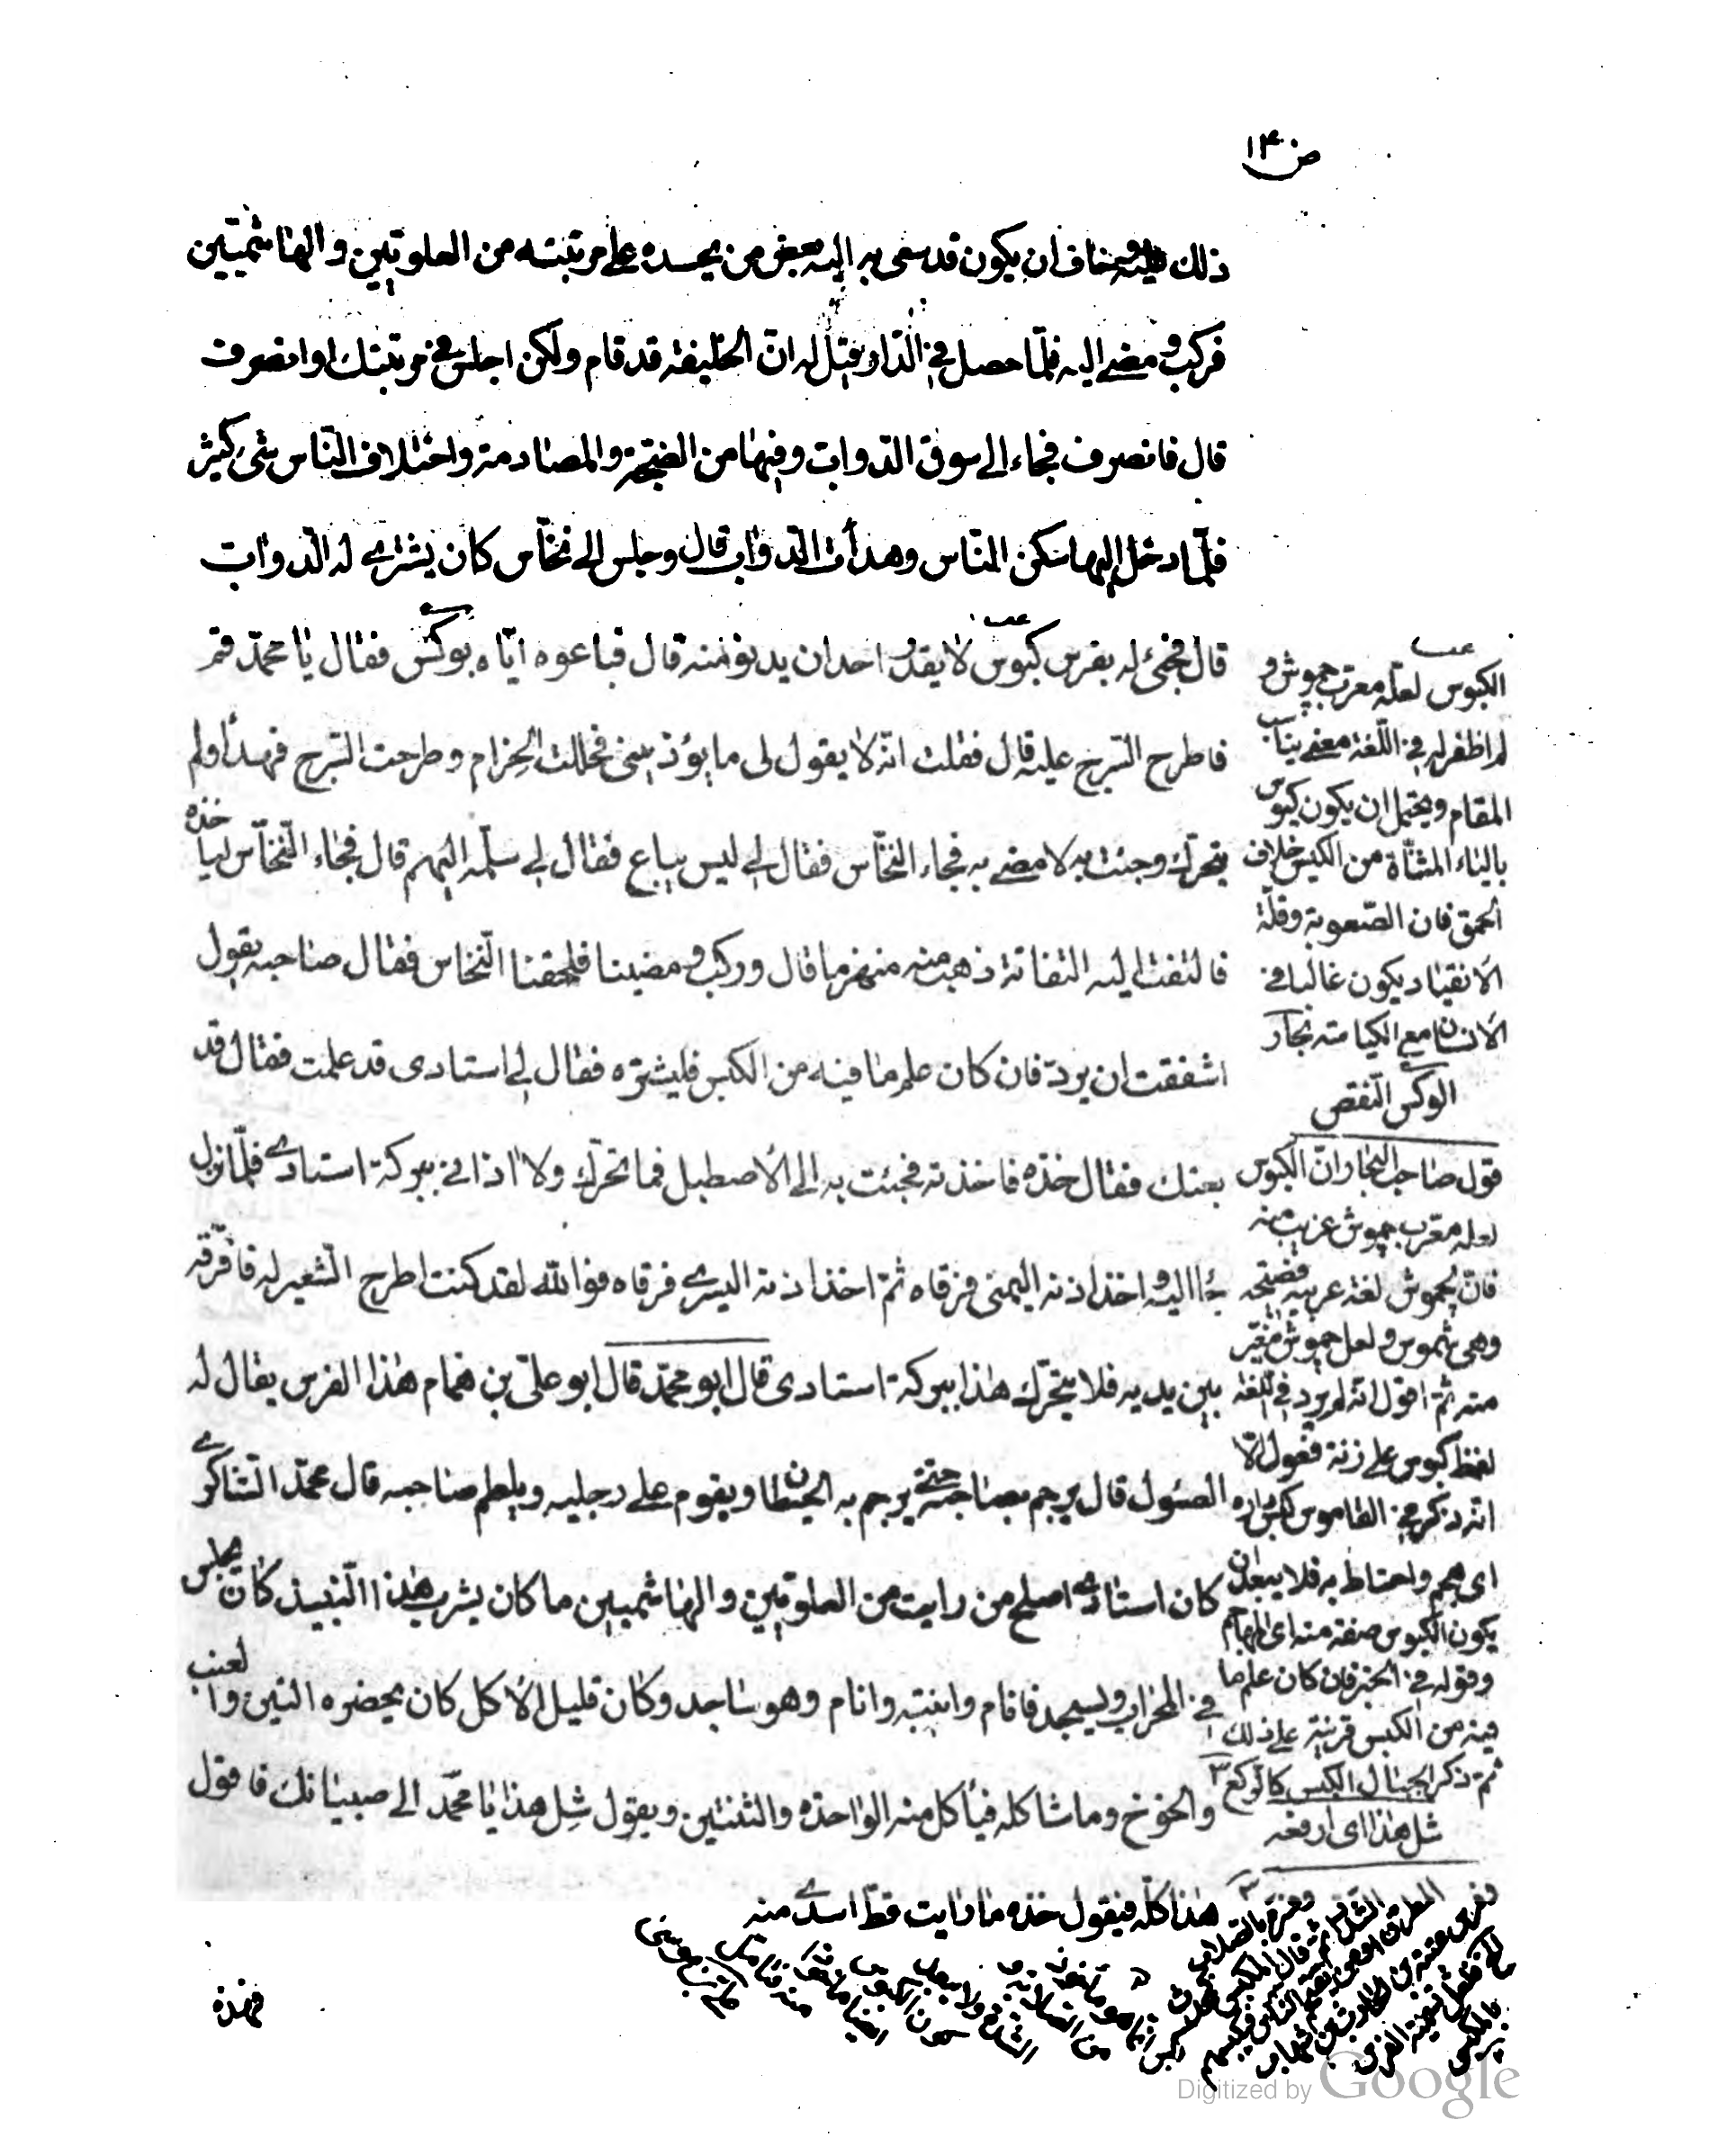 ص ١٤
ذلك عليه وخاف ان يكون قد سعى به اليه بعض من يحسده على مرتبته من العلويّين والهاشميّين
فركب ومضى اليه فلمّا حصل في الدّار قيل له انّ الخليفة قد قام ولكن اجلس في مرتبتك او انصرف
قال فانصرف فجاء الى سوق الدّوابّ وفيها من الضّجّة والمصادمة واختلاف النّاس شئ كثير
فلمّا دخل اليها سكن النّاس وهدأت الدّوابّ قال وجلس الى نخّاس كان يشترى له الدّوابّ
قال فجئ له بفرس كبوس لا يقدر احد ان يدنو منه قال فباعوه ايّاه بوكس فقال يا محمّد قم
فاطرح السّرج عليه قال فقلت انّه لا يقول لى ما يؤذينى فحللت الحزام وطرحت السّرج فهدأ ولم
يتحرّك وجئت به لامضى به فجاء النخّاس فقال لي ليس يباع فقال لي سلّمه اليهم قال فجاء النّخّاس ليأخذه
فالتفت اليه التفاتة ذهب منه منهزما قال وركب ومضينا فلحقنا النّخاس فقال صاحبه يقول
اشفقت ان يردّ فان كان علم ما فيه من الكبس فليشتره فقال لي استادى قد علمت فقال قد
بعتك فقال خذه فاخذته فجئت به الى الاصطبل فما تحرّك ولا اذانى ببركة استادى فلمّا نزل
جاء اليه واخذ اذنه اليمنى فرقاه ثمّ اخذ اذنه اليسرى فرقاه فوالله لقد كنت اطرح الشّعير له فافرّقه
بين يديه فلا يتحرّك هذا ببركة استادى قال ابو محمّد قال ابو علىّ بن همام هذا الفرس يقال له
الصئول قال يرجم بصاحبه حتّى يرجم به الحيطان ويقوم على رجليه ويلطم صاحبه قال محمّد الشّاكرى
كان استادى اصلح من رايت من العلويّين والهاشميين ما كان يشرب هذا النّبيذ كان يجلس
في المحراب ويسجد فانام وانتبه وانام وهو ساجد وكان قليل الأكل كان يحضره التين والعنب
والخوخ وما شاكله فيأكل منه الواحدة والثنتين ويقول شل هذا يا محمّد الى صبيانك فاقول
هذا كلّه فيقول خذه ما رايت قطّ اسدى منه
فهذه
الكبوس لعلّه معرّب چموش و
لم اظفر له في اللّغة معنى يناسب
المقام ويحتمل ان يكون كيوس
بالياء المثنّاة من الكيس خلاف
الحمق فان الصّعوبة وقلّة
الانقياد يكون غالبا في
الانسان مع الكياسة بحار
الوكس النّقص
قول صاحب البحار انّ الكبوس
لعله معرّب چموش غريب منه
فانّ چموش لغة عربيه فصيحه
وهى شموس ولعل چموش مغيّر
منه ثمّ اقول انّه لم يرد في اللّغة
لفظ كبوس على زنة فعول الّا
انّه ذكر في القاموس كبس داره
اى هجم واحتاط به فلا يبعد ان
يكون الكبوس صفة منه اى الهجام
وقوله في الخبر فان كان علم ما
فيه من الكبس قرينة على ذلك
ثمّ ذكر الجبال الكبس كالركع
شل هذا اى ارفعه